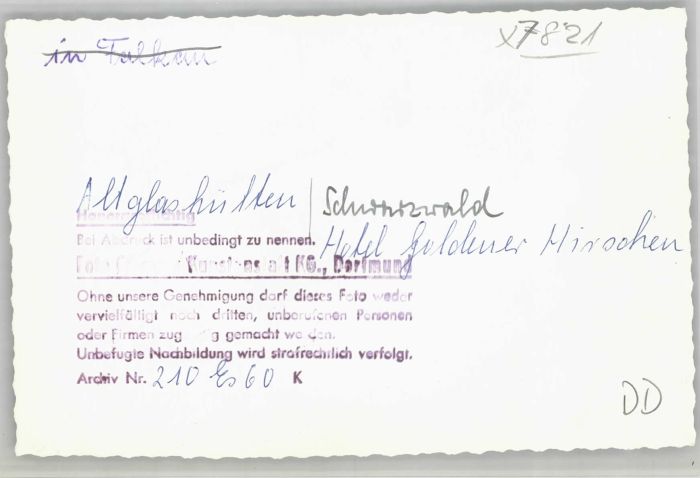 in Falkau
x7821
Altglashütten | Schwarzwald
Hotel Goldener Hirschen
Honorarpflichtig
Bei Abdruck ist unbedingt zu nennen.
Foto Kunstanstalt KG., Dortmund
Ohne unsere Genehmigung darf dieses Foto weder
vervielfältigt noch dritten, unberufenen Personen
oder Firmen zugängig gemacht werden.
Unbefugte Nachbildung wird strafrechtlich verfolgt.
Archiv Nr. 210 Es 60 K
DD